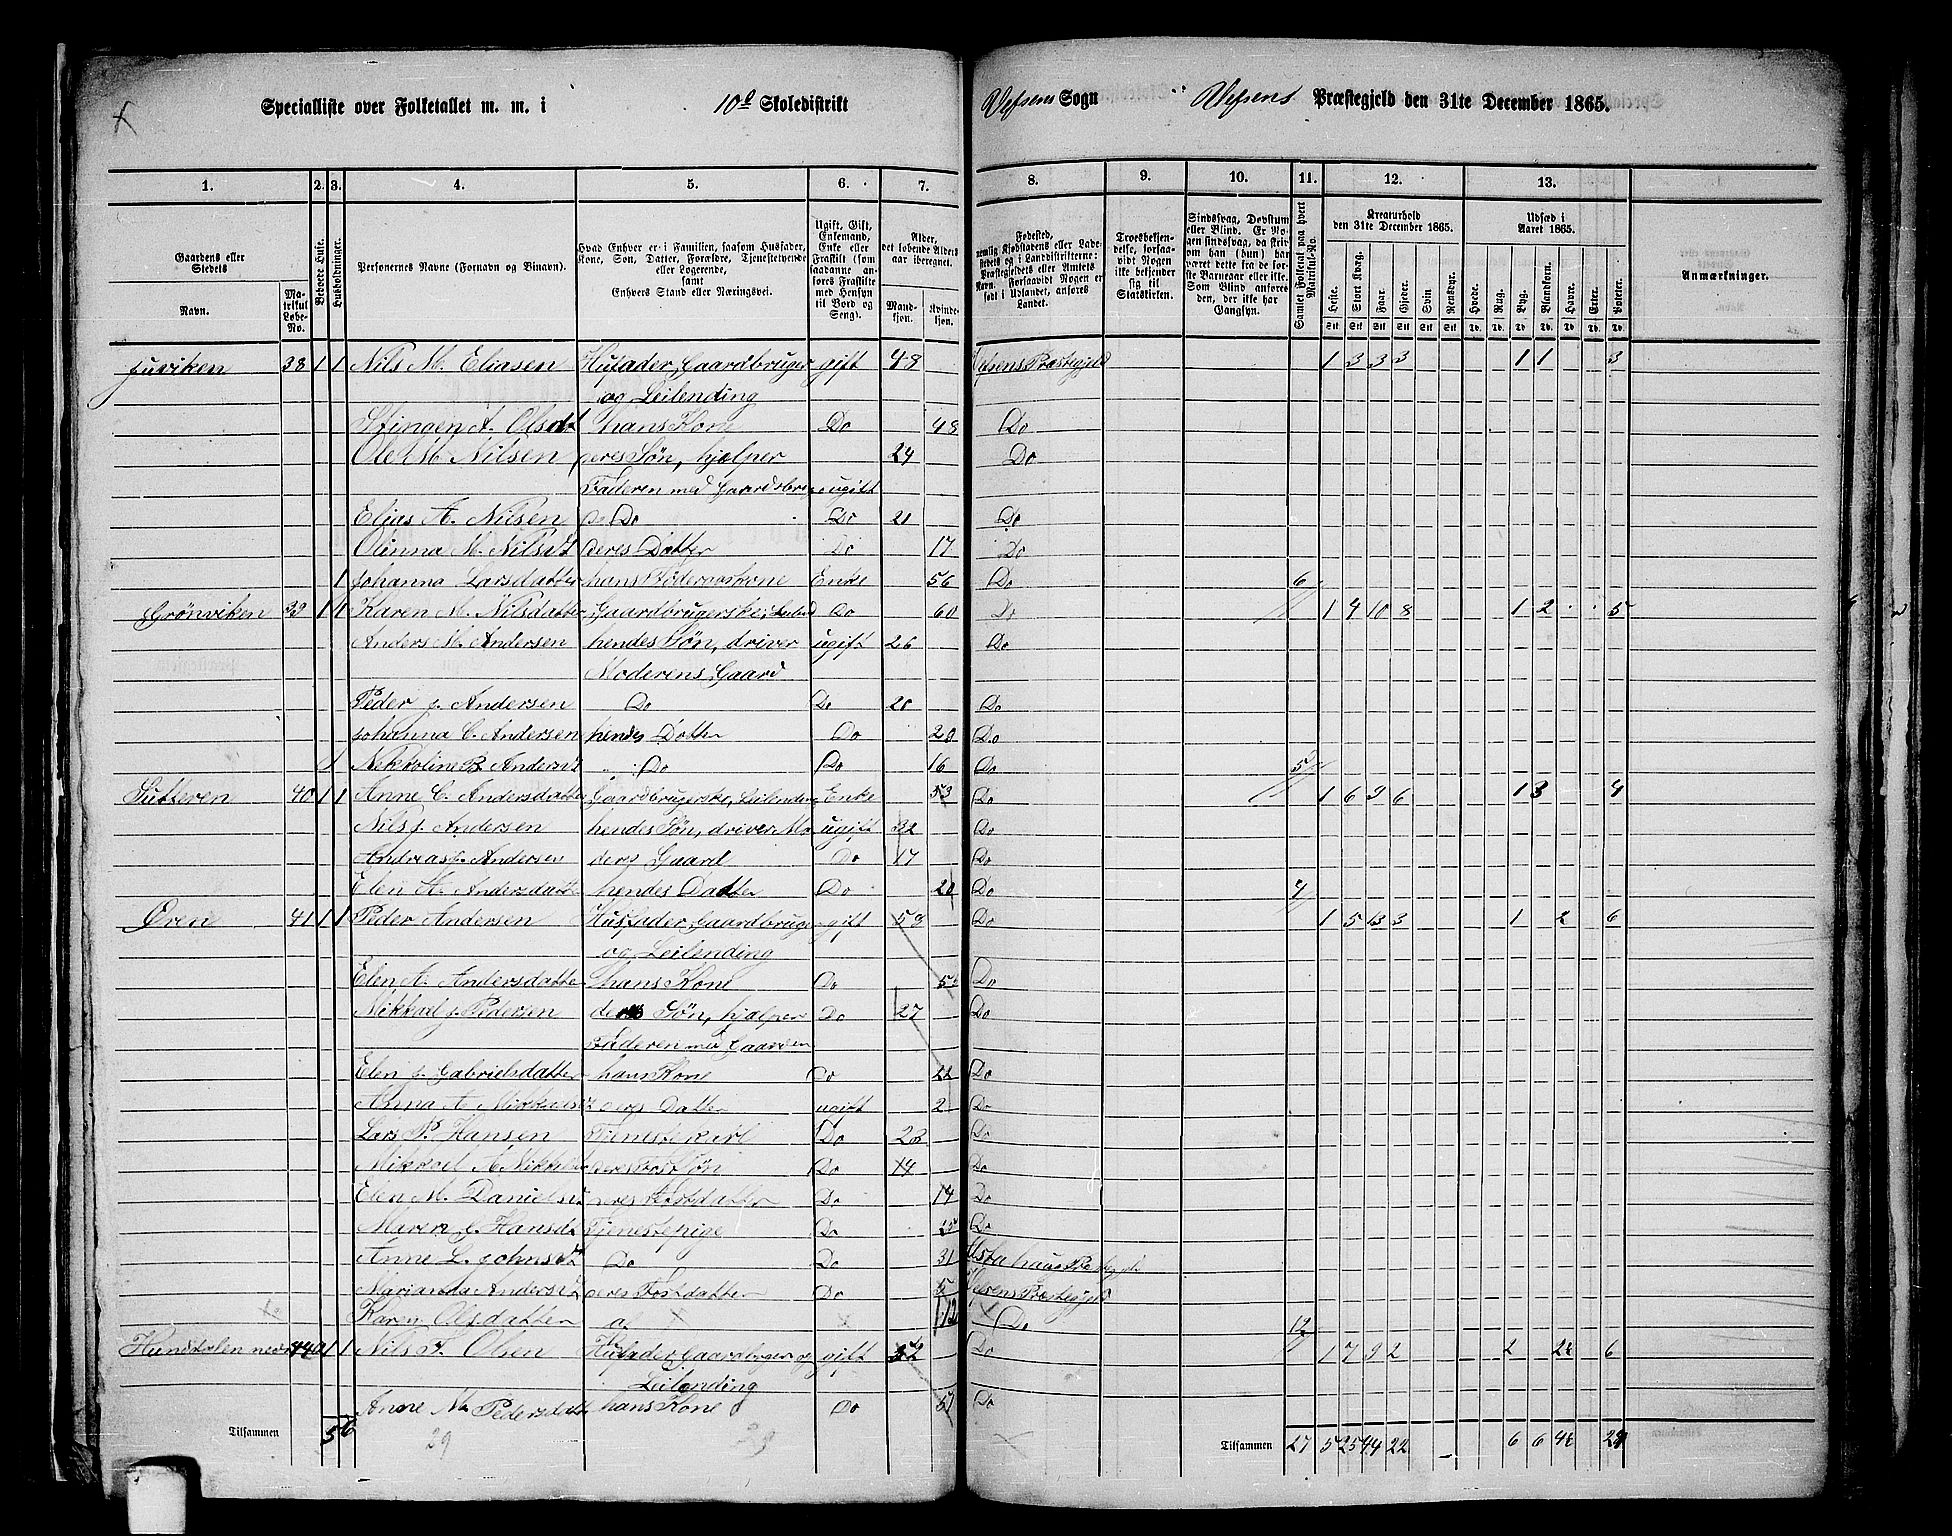 Specialliste over Folketallet m. m. i 10de Skoledistrikt Vefsens Sogn Vefsens Præstegjeld den 31te December 1865.
1. 2. 3. 4. 5. 6. 7. 8. 9. 10. 11. 12. 13.
Gaardens eller Stedets
Navn.
Matrikul Løbe-No.
Beboede Huse.
Husholdninger.
Personernes Navne (Fornavn og Binavn).
Hvad Enhver er i Familien, saasom Husfader, Kone, Søn, Datter, Forældre, Tjenestetyende eller Logerende, samt Enhvers Stand eller Næringsvei.
Ugift, Gift, Enkemand, Enke eller Fraskilt (som saadanne anføres Fraskilte med Hensyn til Bord og Seng).
Alder, det løbende Alders aar iberegnet.
Mandkjøn.
Kvindekjøn.
Fødested, nemlig Kjøbstadens eller Ladestedets og i Landdistrikterne: Præstegjeldets eller Amtets Navn. Forsaavidt Nogen er født i Udlandet, anføres Landet.
Troesbekjendelse, forsaavidt Nogen ikke bekjender sig til Statskirken.
Sindssvag, Døvstum eller Blind. Er Nogen sindssvag, da skrives om han (hun) har været dette fra de første Barneaar eller ikke. Som Blind anføres den, der ikke har Gangsyn.
Samlet Folketal paa hvert Matrikul-No.
Kreaturhold den 31te December 1865.
Heste. Stort Kvæg. Faar. Gjeder. Svin Rensdyr.
Udsæd i Aaret 1865.
Hvede. Rug. Byg. Blandkorn. Havre. Erter. Poteter.
Anmærkninger.
Juviken 38 1 1 Nils M. Eliasen Husfader, Gaardbruger gift 48 Vefsens Præstegjeld 1 3 3 3 1 1 3
og Leilending
A. Olsdt hans Kone Do 48 Do
Ole M. Nilsen deres Søn, hjelper 24 Do
Faderen med Gaardsbrug ugift
Elias A. Nilsen Do Do 21 Do
Olinna M. Nilsdt deres Datter Do 17 Do
1 Johanna Larsdatter hans Enke 56 Do 6
Grønviken 39 1 1 Karen M. Nilsdatter Gaardbrugerske, Do 60 Do 1 9 10 8 1 2 5
Anders M. Andersen hendes Søn, driver ugift 26 Do
Moderens Gaard
Peder J. Andersen Do Do 20 Do
Johanna C. Andersen hendes Datter Do 20 Do
B. Andersdt Do Do 16 Do 5
40 1 1 Anne C. Andersdatter Gaardbrugerske, Leilending Enke 53 Do 1 6 9 6 1 3 4
Nils J. Andersen hendes Søn, driver Mo ugift 32 Do
Andreas J. Andersen ders Gaard Do 17 Do
Elen A. Andersdatter hendes Datter Do 20 Do 4
Øren 41 1 1 Peder Andersen Husfader, Gaardbruger gift Do 1 5 13 3 1 2 6
og Leilending
Elen A. Andersdatter hans Kone Do Do
J. Pedersen deres Søn, hjalper Do 27 Do
Faderen med Gaarden
Elen J. Gabrielsdatter hans Kone Do 22 Do
Anna A. deres Datter ugift 2 Do
Lars P. Hansen Tjenestekarl Do 23 Do
Mikkael A. deres Fostsøn Do 14 Do
Elen M. deres Fostdatter Do 14 Do
Maren J. Hansdt Tjenestepige Do 25 Do
Anne L. Do Do 31
Andersdt deres Fostdatter Do 5 Vefsens Præstegjeld
Karen Olsdatter 12 Do 12
Hundtalen Nils Olsen Husfader Gaardbruger og gift Do 1 7 9 2 2 6
Leilending
Anne M. Pedersdatt hans Kone Do 57 Do
Tilsammen 5 6 29 29
Tilsammen 27 5 25 44 22 6 6